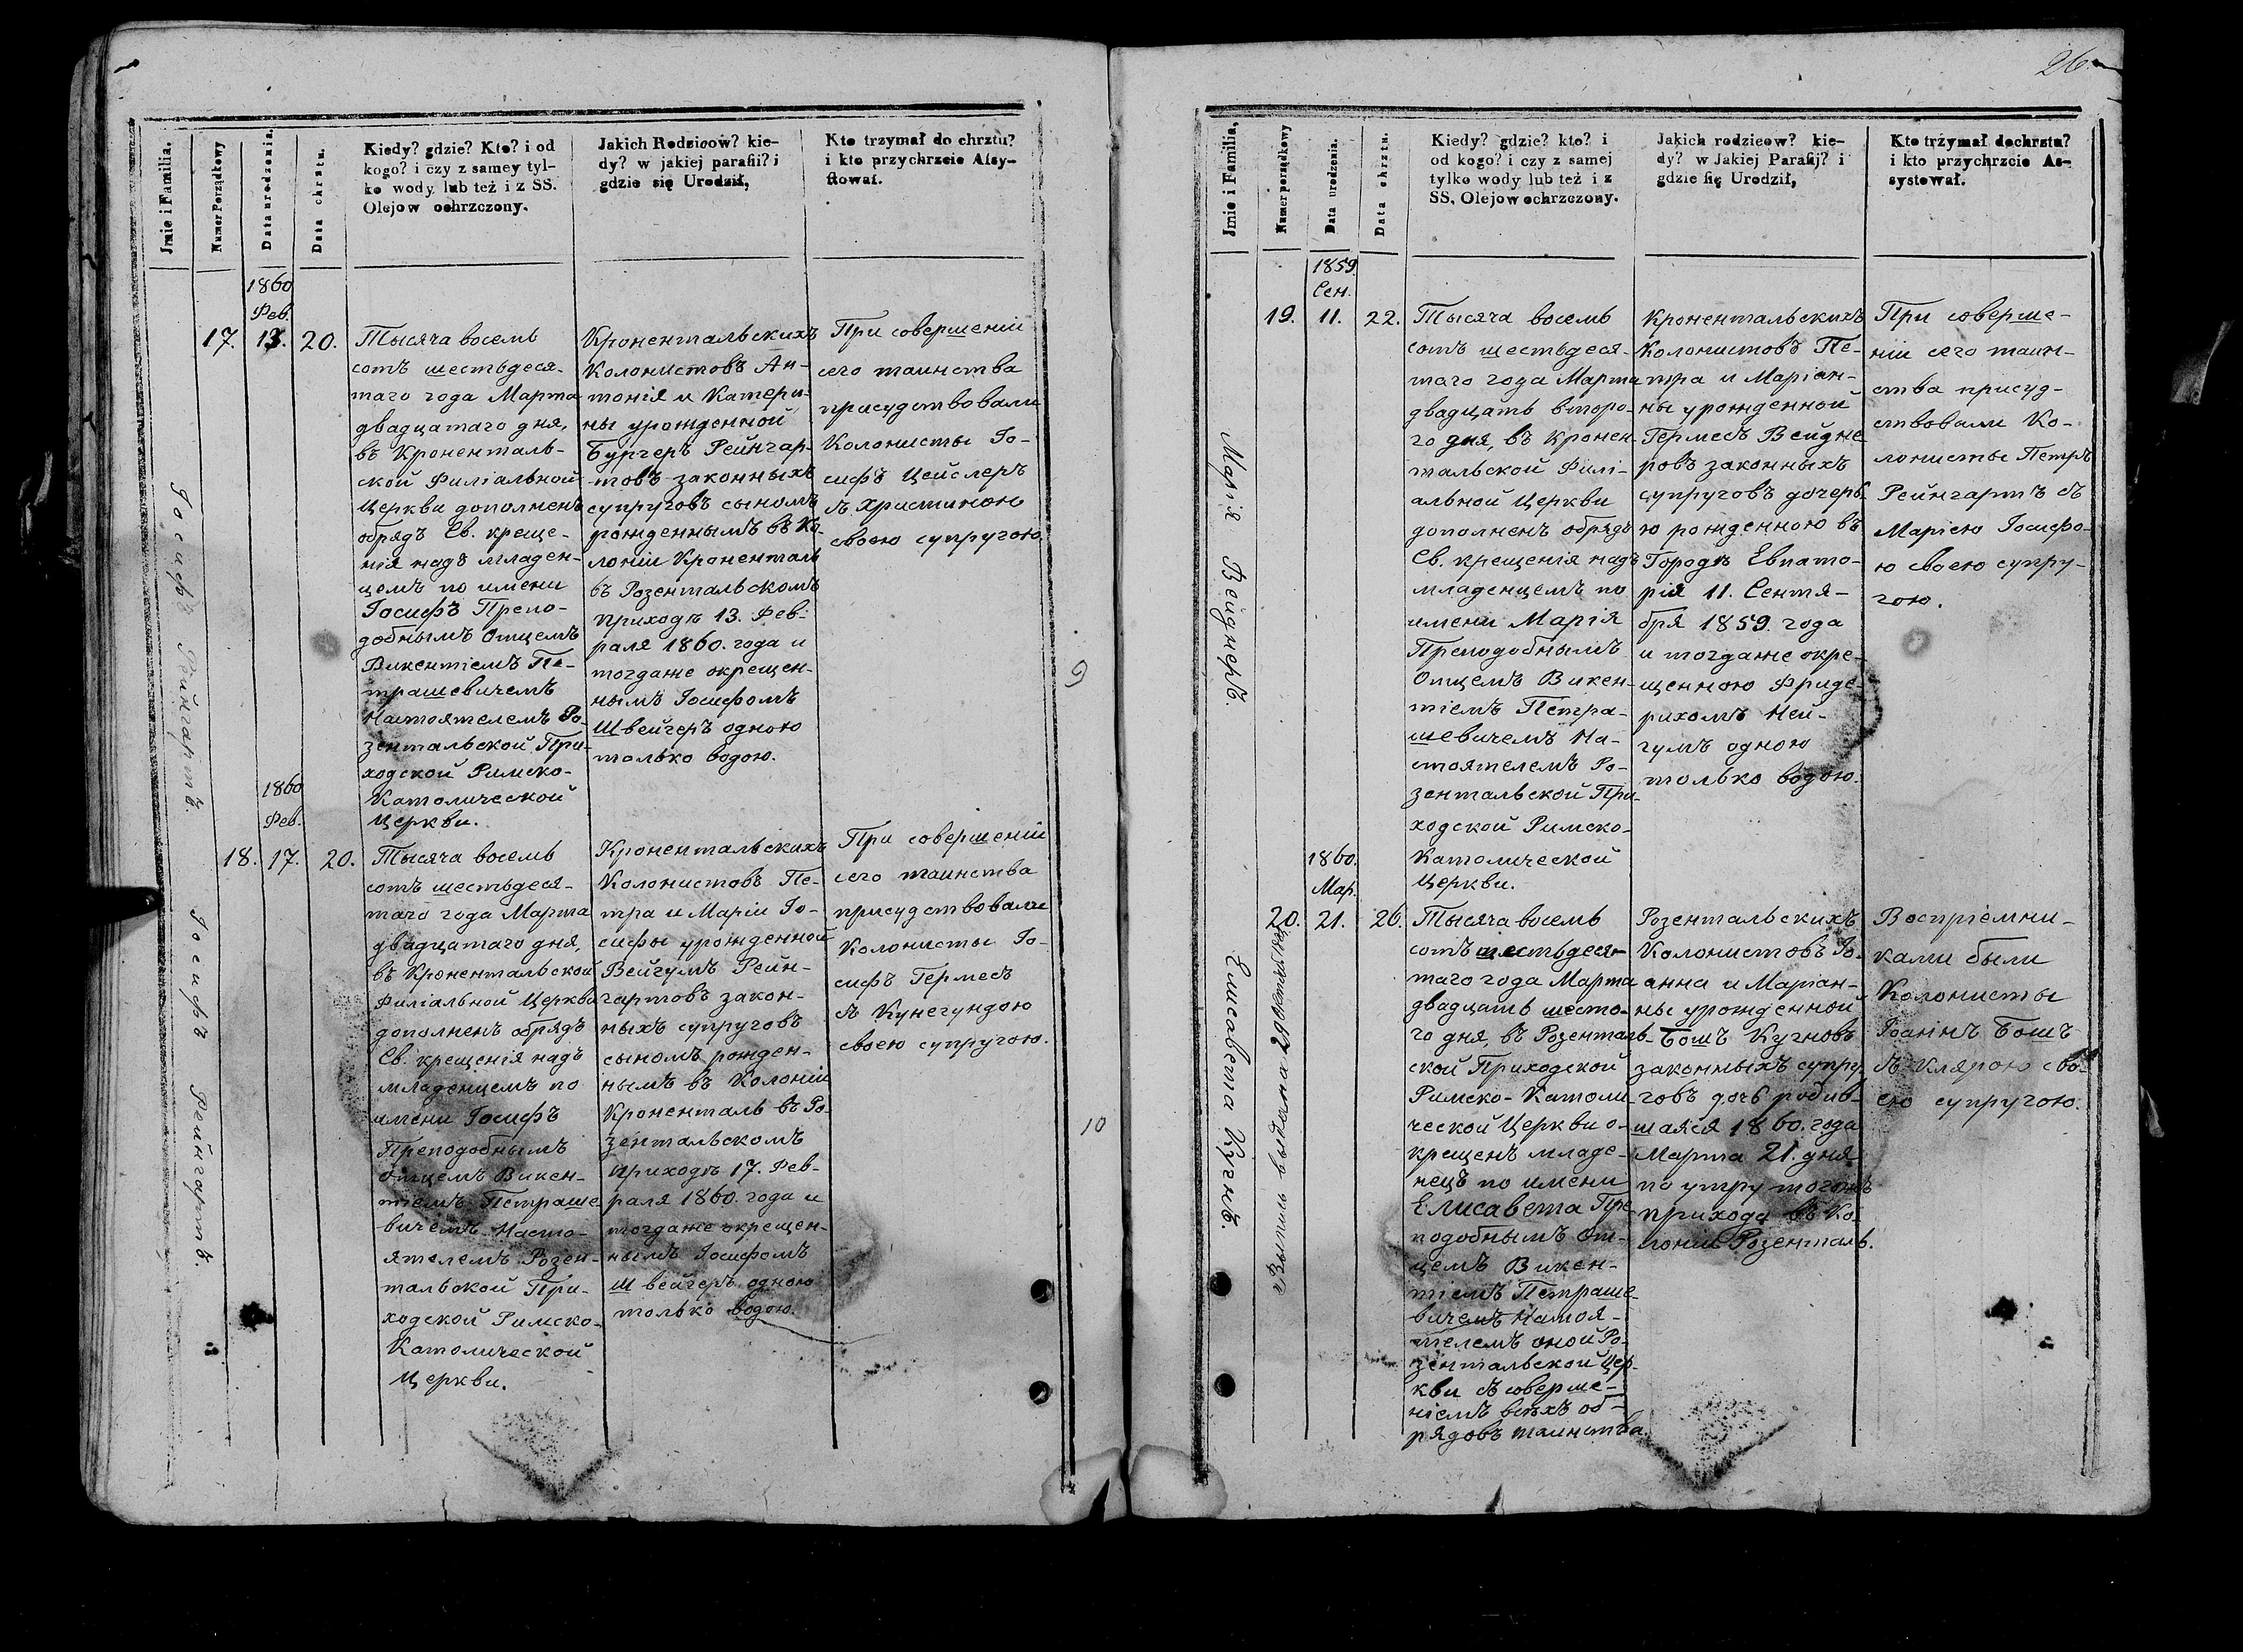 Jmie i Familia.
Numer Porządkowy
Data urodzenia.
Data chrztu.
Kiedy? gdzie? Kto? i od
kogo? i czy z samey tyl-
ko wody lub też i z SS.
Olejow ochrzczony.
Jakich Rodziców? kie-
dy? w jakiej parafii? i
gdzie się Urodził,
Kto trzymał do chrztu?
i kto przychrzcie Assy-
stował.
Іосифъ Рейнгартъ.
1860
Фев.
17. 13. 20.
Тысяча восемь
сотъ шестьдеся-
таго года Марта
двадцатаго дня,
въ Кроненталь-
ской Филіальной
Церкви дополненъ
обрядъ Св. креще-
нія надъ младен-
цемъ по имени
Іосифъ Препо-
добнымъ Отцемъ
Викентіемъ Пе-
трашевичемъ
Настоятелемъ Ро-
зентальской При-
ходской Римско-
Католической
Церкви.
Кронентальскихъ
Колонистовъ Ан-
тонія и Катери-
ны урожденной
Бургеръ Рейнгар-
товъ законныхъ
супруговъ сыномъ
рожденнымъ въ Ко-
лоніи Кроненталь
въ Розентальскомъ
приходѣ 13. Фев-
раля 1860. года и
тогдаже окрещен-
нымъ Іосифомъ
Швейгеръ одною
только водою.
При совершеніи
сего таинства
присудствовали
Колонисты Іо-
сифъ Цейслеръ
съ Христиною
своею супругою.
9
Іосифъ Рейнгартъ.
1860
Фев.
18. 17. 20.
Тысяча восемь
сотъ шестьдеся-
таго года Марта
двадцатаго дня,
въ Кронентальской
Филіальной Церкви
дополненъ обрядъ
Св. крещенія надъ
младенцемъ по
имени Іосифъ
Преподобнымъ
Отцемъ Викен-
тіемъ Петраше-
вичемъ Насто-
ятелемъ Розен-
тальской При-
ходской Римско-
Католической
Церкви.
Кронентальскихъ
Колонистовъ Пе-
тра и Маріи Іо-
сифы урожденной
Вейгумъ Рейн-
гартовъ закон-
ныхъ супруговъ
сыномъ рожден-
нымъ въ Колоніи
Кроненталь въ Ро-
зентальскомъ
приходѣ 17. Фев-
раля 1860. года и
тогдаже окрещен-
нымъ Іосифомъ
Швейгеръ одною
только водою.
При совершеніи
сего таинства
присудствовали
Колонисты Іо-
сифъ Гермесъ
съ Кунегундою
своею супругою.
10
26
Jmie i Familia,
Numer porządkowy
Data urodzenia.
Data chrztu.
Kiedy? gdzie? kto? i
od kogo? i czy z samej
tylko wody lub też i z
SS. Olejow ochrzczony.
Jakich rodzicow? kie-
dy? w Jakiej Parafij? i
gdzie się Urodził,
Kto trzymał dochrztu?
i kto przychrzcie As-
systował.
Марія Вейднеръ.
1859.
Сен.
19. 11. 22.
Тысяча восемь
сотъ шестьдеся-
таго года Марта
двадцать второ-
го дня, въ Кронен-
тальской Филі-
альной Церкви
дополненъ обрядъ
Св. крещенія надъ
младенцемъ по
имени Марія
Преподобнымъ
Отцемъ Викен-
тіемъ Петра-
шевичемъ На-
стоятелемъ Ро-
зентальской При-
ходской Римско-
Католической
Церкви.
Кронентальскихъ
Колонистовъ Пе-
тра и Маріан-
ны урожденной
Гермесъ Вейдне-
ровъ законныхъ
супруговъ дочерь-
ю рожденною въ
Городѣ Евпато-
рія 11. Сентя-
бря 1859. года
и тогдаже окре-
щенною Фриде-
рихомъ Ней-
гумъ одною
только водою.
При соверше-
ніи сего таин-
ства присуд-
ствовали Ко-
лонисты Петръ
Рейнгартъ съ
Маріею Іосифо-
ю своею супру-
гою.
Елисавета Кугнъ.
Выпись выдана 29
1860.
Мар.
20. 21. 26.
Тысяча восемь
сотъ шестьдеся-
таго года Марта
двадцать шесто-
го дня, въ Розенталь-
ской Приходской
Римско-Католи-
ческой Церкви о-
крещенъ младе-
нецъ по имени
Елисавета Пре-
подобнымъ От-
цемъ Викен-
тіемъ Петраше-
вичемъ Настоя-
телемъ оной Ро-
зентальской Цер-
кви съ соверше-
ніемъ всѣхъ об-
рядовъ таинства.
Розентальскихъ
Колонистовъ Іо-
анна и Маріан-
ны урожденной
Бошъ Кугновъ
законныхъ супру-
говъ дочь родив-
шаяся 1860. года
Марта 21. дня
по утру тогожъ
прихода въ Ко-
лоніи Розенталь.
Воспріемни-
ками были
Колонисты
Іоаннъ Бошъ
съ Клярою сво-
ею супругою.